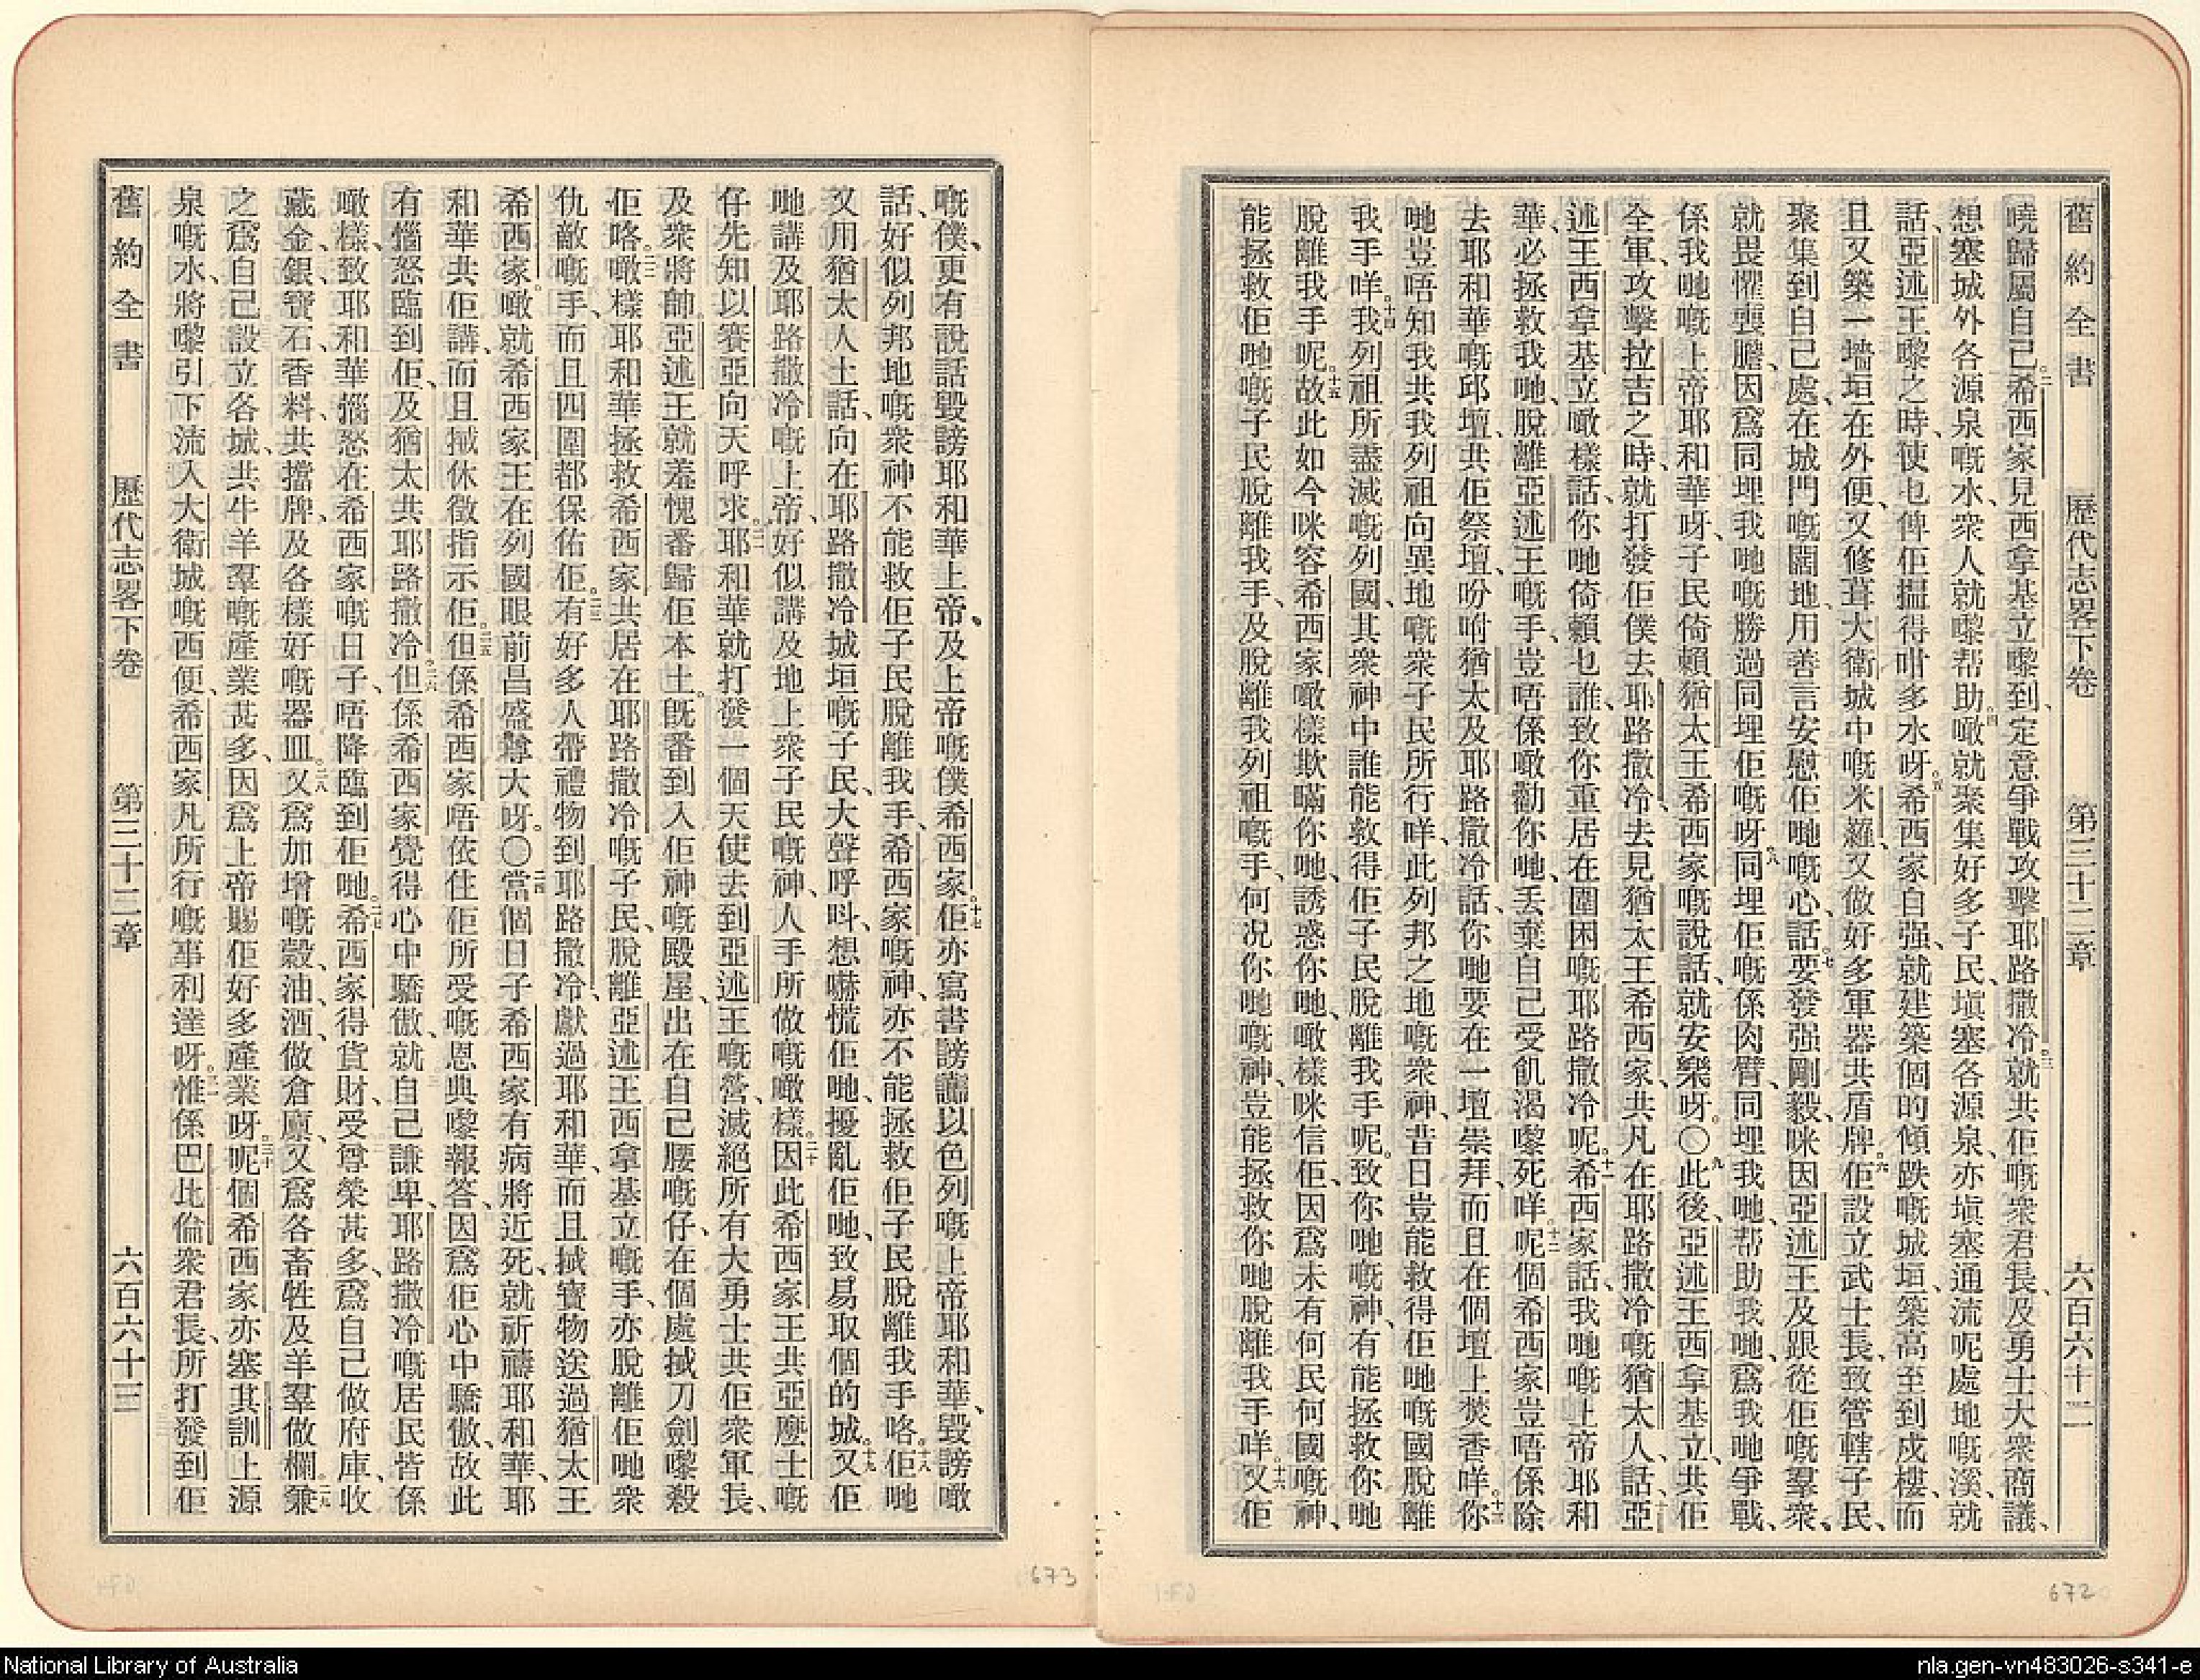 舊約全書 歷代志畧下卷 第三十二章 六百六十二
曉歸屬自己。二希西家見西拿基立嚟到、定意爭戰攻擊耶路撒冷。三就共佢嘅衆君長、及勇士大衆商議、
想塞城外各源泉嘅水、衆人就嚟帮助。四噉就聚集好多子民、塡塞各源泉、亦塡塞通流呢處地嘅溪、就
話、亞述王嚟之時、使乜俾佢搵得咁多水呀。五希西家自强、就建築個的傾跌嘅城垣、築高至到戍樓、而
且又築一墻垣在外便、又修葺大衛城中嘅米羅、又做好多軍器共盾牌。六佢設立武士長、致管轄子民、
聚集到自己處、在城門嘅闊地、用善言安慰佢哋嘅心、話、七要發强剛毅、咪因亞述王及跟從佢嘅羣衆、
就畏懼喪膽、因爲同埋我哋嘅勝過同埋佢嘅呀。八同埋佢嘅係肉臂、同埋我哋、帮助我哋、爲我哋爭戰、
係我哋嘅上帝耶和華呀、子民倚賴猶太王希西家嘅說話、就安樂呀。〇九此後、亞述王西拿基立、共佢
全軍、攻擊拉吉之時、就打發佢僕去耶路撒冷、去見猶太王希西家、共凡在耶路撒冷嘅猶太人、話、十亞
述王西拿基立噉樣話、你哋倚賴乜誰、致你重居在圍困嘅耶路撒冷呢。十一希西家話、我哋嘅上帝耶和
華、必拯救我哋、脫離亞述王嘅手、豈唔係噉勸你哋、丢棄自己受飢渴嚟死咩。十二呢個希西家豈唔係除
去耶和華嘅邱壇、共佢祭壇、吩咐猶太及耶路撒冷話、你哋要在一壇崇拜、而且在個壇上焚香咩。十三你
哋豈唔知我共我列祖向異地嘅衆子民所行咩、此列邦之地嘅衆神、昔日豈能救得佢哋嘅國脫離
我手咩。十四我列祖所盡滅嘅列國、其衆神中誰能救得佢子民脫離我手呢。致你哋嘅神、有能拯救你哋
脫離我手呢。十五故此如今咪容希西家噉樣欺瞞你哋、誘惑你哋、噉樣咪信佢、因爲未有何民何國嘅神、
能拯救佢哋嘅子民脫離我手、及脫離我列祖嘅手、何况你哋嘅神、豈能拯救你哋脫離我手咩。十六又佢
嘅僕、更有說話毀謗耶和華上帝、及上帝嘅僕希西家。十七佢亦寫書謗讟以色列嘅上帝耶和華、毀謗噉
話、好似列邦地嘅衆神不能救佢子民脫離我手、希西家嘅神、亦不能拯救佢子民脫離我手咯。十八佢哋
又用猶太人土話、向在耶路撒冷城垣嘅子民、大聲呼呌、想嚇慌佢哋、擾亂佢哋、致易取個的城。十九又佢
哋講及耶路撒冷嘅上帝、好似講及地上衆子民嘅神、人手所做嘅噉樣。二十因此希西家王共亞麼士嘅
仔先知以賽亞向天呼求。二一耶和華就打發一個天使去到亞述王嘅營、滅絕所有大勇士共佢衆軍長、
及衆將帥。亞述王就羞愧番歸佢本土。旣番到入佢神嘅殿屋、出在自己腰嘅仔、在個處拭刀劍嚟殺
佢咯。二二噉樣耶和華拯救希西家、共居在耶路撒冷嘅子民、脫離亞述王西拿基立嘅手、亦脫離佢哋衆
仇敵嘅手、而且四圍都保佑佢。二三有好多人帶禮物到耶路撒冷、獻過耶和華、而且拭寶物送過猶太王
希西家。噉就希西家王在列國眼前昌盛尊大呀。〇二四當個日子希西家有病將近死、就祈禱耶和華、耶
和華共佢講、而且拭休徵指示佢。二五但係希西家唔依住佢所受嘅恩典嚟報答、因爲佢心中驕傲、故此
有惱怒臨到佢、及猶太共耶路撒冷。二六但係希西家覺得心中驕傲、就自己謙卑、耶路撒冷嘅居民皆係
噉樣、致耶和華惱怒在希西家嘅日子、唔降臨到佢哋。二七希西家得貨財、受尊榮甚多、爲自己做府庫、收
藏金、銀、寶石、香料、共擋牌、及各樣好嘅器皿。二八又爲加增嘅穀、油、酒、做倉廩、又爲各畜牲及羊羣做欄。二九兼
之爲自己設立各城、共牛羊羣嘅產業甚多、因爲上帝賜佢好多產業呀。三十呢個希西家亦塞其訓上源
泉嘅水、將嚟引下流入大衛城嘅西便、希西家凡所行嘅事利達呀。三一惟係巴比倫衆君長、所打發到佢
舊約全書 歷代志畧下卷 第三十二章 六百六十三
672
673
National Library of Australia
nla.gen-vn483026-s341-e